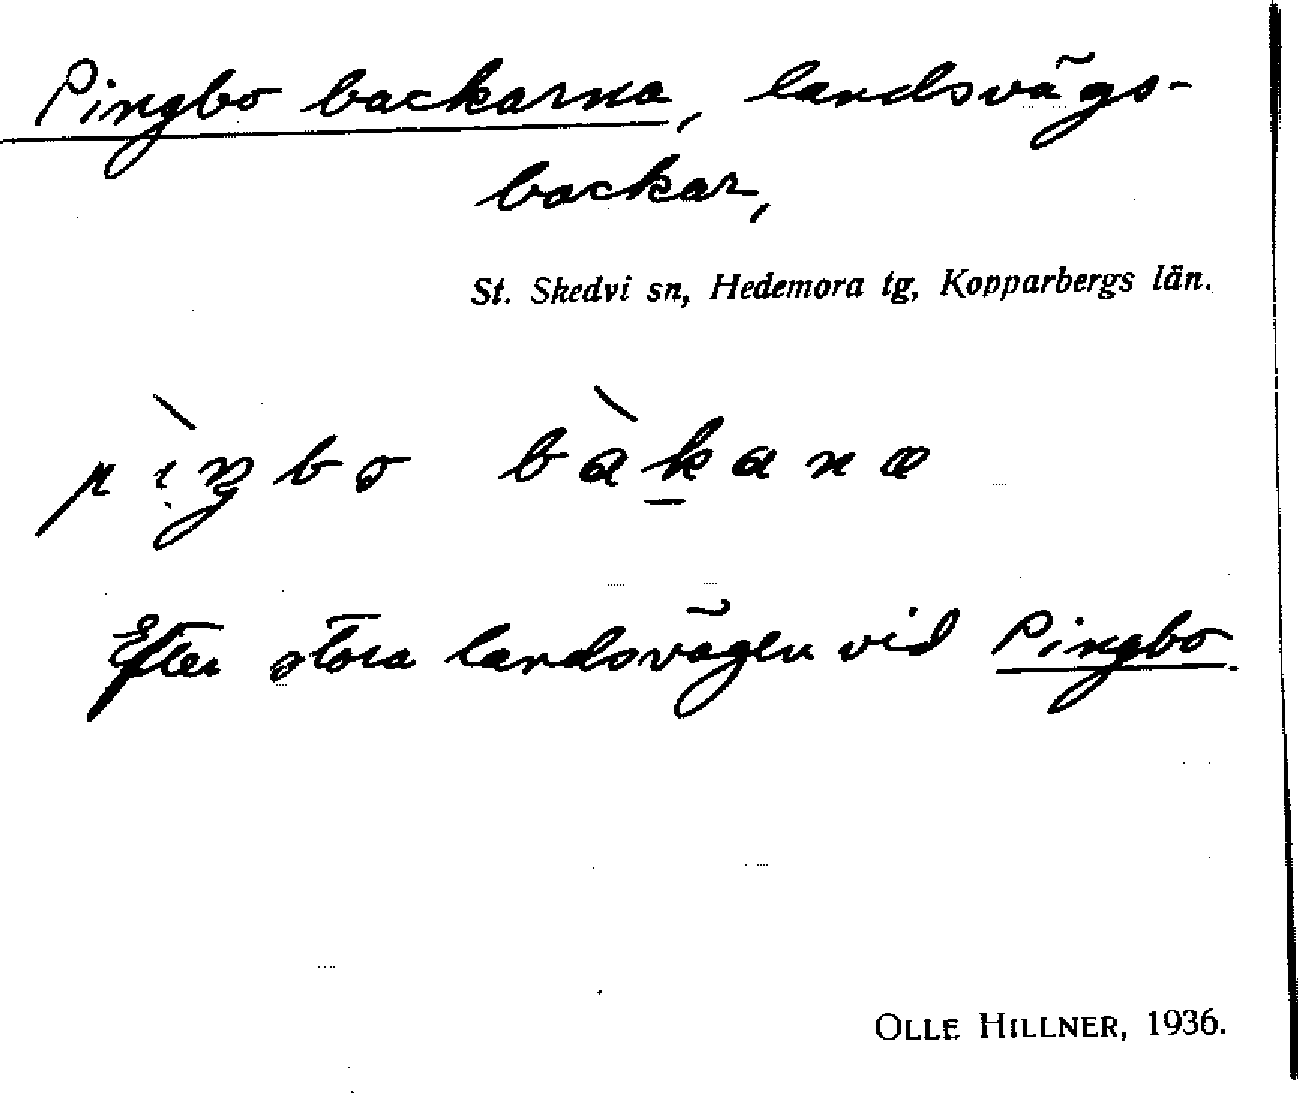 Pingbo backarna, landsvägs-
backar,
St. Skedvi sn, Hedemora tg, Kopparbergs län.
pı̣̀ŋbo bàk̲anæ
Efter stora landsvägen vid Pingbo.
OLLE HILLNER, 1936.